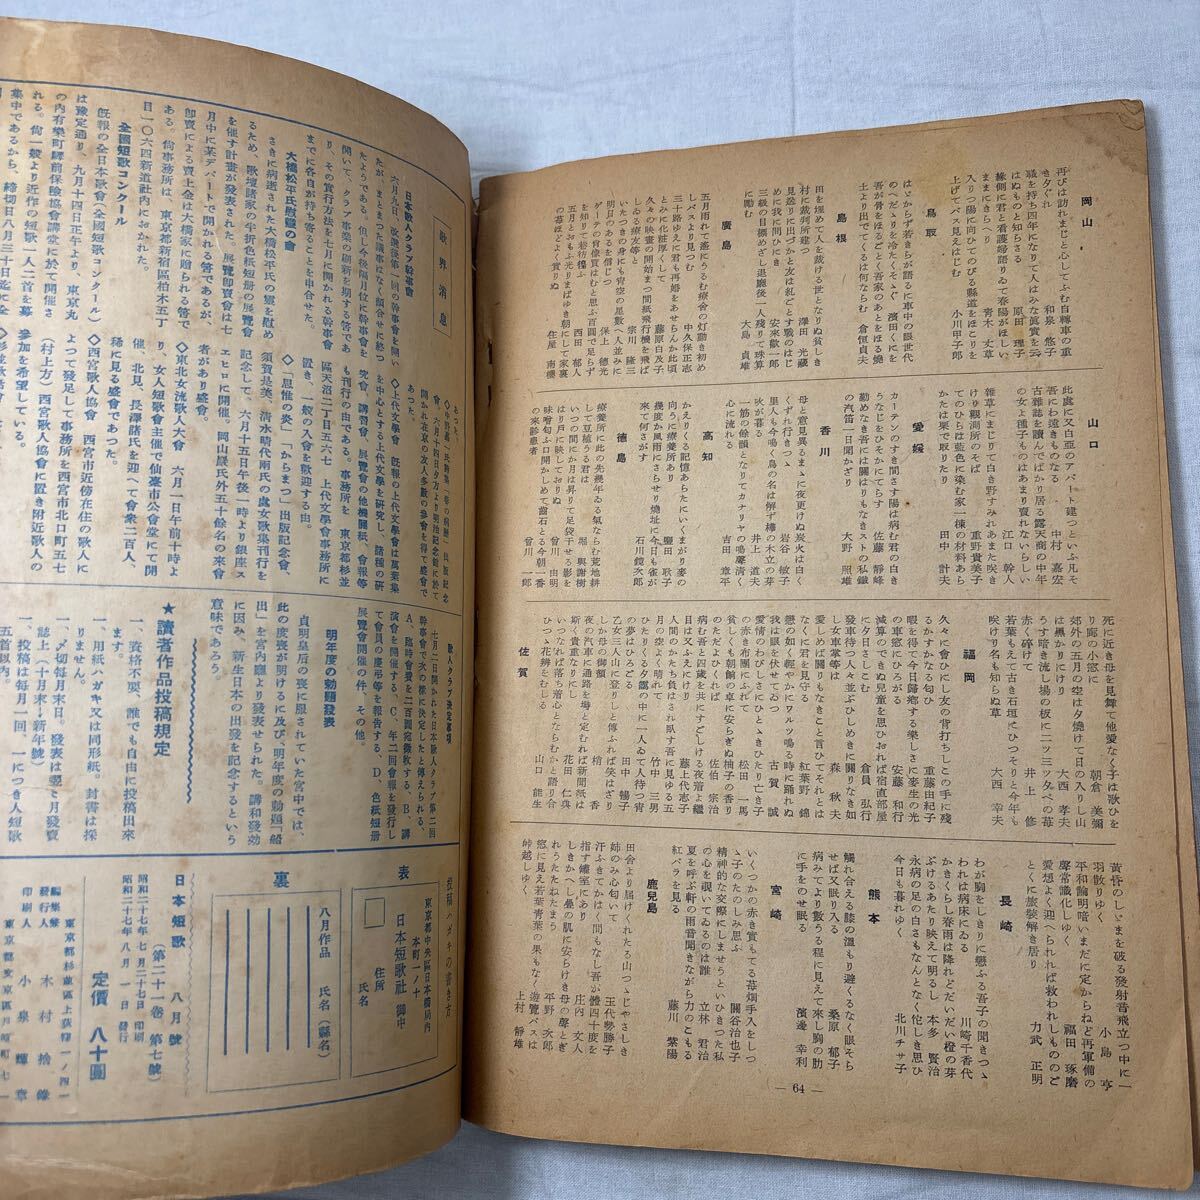 岡山
再びは訪れまじと心してふむ自轉車の重
き夕ぐれ　和泉　悠子
騷を持ち四年になりて人はみな眞實を云
はぬものと知らさる　原田　理子
緣側に君と看護婦語りゐて春陽がほしい
ままにきらへり　青木　丈草
入り陽に向ひてのびる縣道をほこりを
上げてバス見えはじむ　小川甲子郎
鳥取
はゞからず若きらが語る車中の眼世代
のへだゝりを冷たくそゝぐ　濱田くにを
吾が骨をほるごとく吾家のあとをほる燒
土より出でてくるは何ならむ　倉恒貞夫
島根
田を埋めて人を裁ける世となりぬ貧しき
村に裁判所建つ　澤田　光藏
見送りに出づべと友は紅どす戰のはじじ
めに我に問ひき　安來　徹一郎
三級の目標めざし退廳後一人殘りて球算
に勵む　大島　貞雄
廣島
五月雨れて遙にうるむ療舍の灯動き初め
しバスより見つむ　中久保正志
三十路ゆえに君も再婚をあせらんか此頃
とみに化粧厚くして　藤原白及子
久々の映畫の開始まつ間紙飛行機を飛ば
しゐる療友等と　宗川　隆三
いたつきの身にも青空の星數へ人並みに
明日のある信じつ　保上　德光
ゲーテの肖像買はむと思ふ百圓で足らず
を知りまして岩彷徨ふ　西田　郁人
五月とおもふ光りまばゆき朝にして家裏
の草ほどよく實りぬ　住屋　南樓
山口
此處に又白亞のアパート建つといふ凡そ
吾にわ遠きものなる　中村　嘉宏
古雜誌を讀んでばかり居る露天商の中年
の女よ種子ものはあまり賣れないらしい
江口　幹人
雜草にまじりて白き野すみれあまた咲き
けり觀測所のそば　重野貴美子
てのひらは藍色に染む家一棟の材料あら
かたは栗で取りたり　田中　計夫
愛媛
カーテンのすき間さす陽は病む君の白き
うなじをひそかにてらす　佐藤　靜峰
勤めなき吾には關はりもなきストの私鐵
の汽笛一日聞かざり　大野　照雄
香川
母と意見異るまゝに夜更けぬ炭火は白く
くずれ行きつゝ　岩谷　敏子
里人も今鳴く鳥の名は解ず欅の木立の芽
吹が暮る　井上　道夫
一筋の餘韻となりてカナリヤの鳴聲淸く
心に流れる　吉田　章平
高知
かえりくる記憶あらたにいくまがり麥の
向うに療養所あり　鹽田　耿子
幾度か風雨にさらせり燒址に今日も雀が
來て何さがす　石川鏡次郎
德島
療養所に此の先幾年ゐる氣ならむ荒地耕
して豆植うる君は　堀　與謝樹
いつの間にか月は昇りて足袋干せる影を
はり戶に映しており　曾川　由明
味噌旬ふ口開かしめて齒石とる今朝一番
の來診患者　曾川　一郎
福岡
死に近き母を見舞て他愛なく子は歌ひを
り廊の小窓に　朝倉　美彌
郊外の五月の空は夕燒けて日の入りし山
は黑かりけり　大西　孝夫
うす暗き流し場の板に二ッ三ッ夕べの苺
赤く碎けて　井上　修
若葉もえて古き石垣にひつそりと今年も
咲けり名も知らぬ草　大西　幸夫
久々に會ひし友の背打ちしこの手に殘
るかすかなる匂ひ　重藤由紀子
暇を得て今日歸鄕する樂しさに麥生の光
の車窓にひろがる　安藤　和行
減算のできぬ兒童を思ひおれば宿直部屋
に今日も暮れゆく　倉員　弘行
發車待つ人々並ぶひしめきに關りなき如
し女車掌等は　森　秋夫
愛しめば關りもなきこと言ひてそれとは
なくに君を見守る　紅葉野　錦
戀の如く輕やかにワルツ鳴る時に踊れぬ
我は眼を伏せてゐつ　古賀　誠
愛情のわびしさにひとゝきひたり亡き子
の赤き布團にふれて　松田　一馬
貧しくも朝餉の卓に安らぎぬ柚子の香り
のただよひくれば　佐伯　宗治
病む吾と四歲を共にすごしける夜着よ繼
目はゞ又ふえにけり　藤上代志子
人間のかたち負はされ臥す吾に見ゆる五
月の空のよく晴れて　竹中　三男
ひたくる夕靄の中に一人ゐて人待つ宵
の夢はひろごる　田中　暢子
乙女三人山に登りしと傳ふれば笑はざり
しか母の御顏　梢　香
夜の汽車に通路を塲と定むれば新聞紙は
斯く貴重なりし　花田　仁典
いつなれば落ち着心となならむかと語り合
ひつゝ花辨をむしる　山口　能生
佐賀
長崎
黃昏のしゞまを破る發射音飛立つ中に一
羽散りゆく　小島　亨
平和論明暗いまだに定からねど再軍備の
聲常識化しゆく　福田　琢磨
愛想よく迎へられれば救われしもののご
とくに旅裝解き居り　力武　正明
わが胸をしきりに戀ふる吾子の聞きつゝ
われは病床にゐる　川崎千香代
かきくらし春雨は降れどだいだい橙の芽
ぶけるあたり映えて明るし　本多　賢治
永病の足の白さもなんとなく侘しき思ひ
今日も暮れゆく　北川チサ子
熊本
觸れ合える膝の溫もり避くるなく眼そら
せば又眠り入る　桑原　郁子
病みてより數うる程に見えて來し胸の肋
に手をのせ眠る　濱邊　幸利
宮崎
いくつかの赤き實もてる苺畑手入をしつ
ゝ子のたのしみ思ふ　關谷治也子
精神的な交際にしませうといひきつた私
の心を覗いてゐるのは誰　立林　君治
夏を呼ぶ軒の雨音聞きながら力のこもる
紅バラを見る　藤川　紫陽
鹿兒島
田舍より屆けくれたる山つゝじやさしき
姉の心匂いて　玉代勢勝子
汗ふきてかはく間もなし吾が體四十度を
指す罐室にあり　庄內　文人
しきかへし疊の肌に安らけき母の聲とぎ
れうたたねします　平野　次郎
窓に見え若葉靑葉の果もなく遊覽バスは
峠越しゆく　上村　靜雄
― 64 ―
歌界消息
日本歌人クラブ幹事會
六月九日、改選後第一回の幹事會を開い
たが、まとまつた議事はなく顏合せに終つ
たようである。但し今後隔月位に幹事會を
開いて、クラブ事業の刷新を期する筈であ
り、その實行方法を七月に開かれる幹事會
までに各自が持ち寄ることを申合せた。
大橋松平氏慰靈の會
さきに病逝された大橋松平氏の靈を慰め
るため、歌壇諸家の半折色紙短册の展覽會
を催す計畫が發表された。展覽卽賣會は七
月中に某デパートで開かれる筈であるが、
卽賣による賣上金は大橋家に贈られる筈で
ある。尙事務所は、東京都新宿區柏木五丁
目一〇六四新道社內におかれた。
全國短歌コンクール
旣報の全日本歌會（全國短歌コンクール）
は豫定通り、九月十四日正午より、東京丸
の內有樂町驛前保險協會講堂に於て開催さ
れる。尙一般より近作の短歌一人二首を募
集中であるから、締切日八月三十日迄に全
あつた。
◇中野嘉一氏詩集「春の病歷」出版記念
會、六月十四日夕方より明治記念館に於て
開かれ在京の友人多數の參會を得て盛會で
あつた。
◇上代文學會　旣報の上代文學會は萬葉集
を中心とする上代文學を硏究し、諸種の硏
究會、講習會、展覽會の他機關紙、會報等
も刊行の由である。事務所を　東京都杉並
區天沼二丁目五六七　上代文學會事務所に
置き、一般の入會を歡迎する由。
◇「思惟の炎」「からまつ」出版記念會、
須賀是美、淸水晴代兩氏の處女歌集刊行を
記念して、六月十五日午後一時より銀座ス
エヒロに開催。岡山巖氏外五十餘名の來會
者があり盛會。
◇東北女流歌人大會　六月一日午前十時よ
り、女人短歌會主催で仙臺市公會堂にて開
催、北見、長澤諸氏を迎へて會衆二百人、
稀に見る盛會であつた。
◇西宮歌人協會　西宮市近傍在住の歌人に
よつて發足して事務所を西宮市北口町五七
（村上方）西宮歌人協會に置き附近歌人の
參加を希望している。
歌人クラブ決定事項
七月二日開かれた日本歌人クラブ第二回
幹事會で次の樣に決定したと傳えられる。
A、臨時會費を二百圓宛徵收する。B、講
演會を開催する、C、年二回會報を發行し
て會員の慶弔等を報告する、D、色紙短册
展覽會開催の件、その他。
明年度の勅題發表
貞明皇后の喪に服されていた宮中では、
此の度喪が明けるに及び、明年度の勅題「船
出」を宮內廳より發表せられた。講和發効
に因み、新生日本の出發を記念するという
意味であろう。
★讀者作品投稿規定
一、資格不要、誰でも自由に投稿出來
ます。
一、用紙ハガキ又は同形紙。封書は採
りません。
一、〆切每月末日。發表は翌々月發賣
誌上（十月末＝新年號）
一、投稿は每月一回、一につき人短歌
五首以內。
投稿ハガキの書き方
表
東京都中央區日本橋局內
本町一ノ十
日本短歌社　御中
住所
氏名
裏
八月作品
氏名（縣名）
日本短歌　八月號
（第二十一卷　第七號）
昭和二十七年七月二十七日　印刷
昭和二十七年八月一日　發行
定價　八十圓
東京都杉並區上荻窪一ノ四一
編集兼
發行人　木村捨錄
印刷人　小泉輝章
東京都文京區